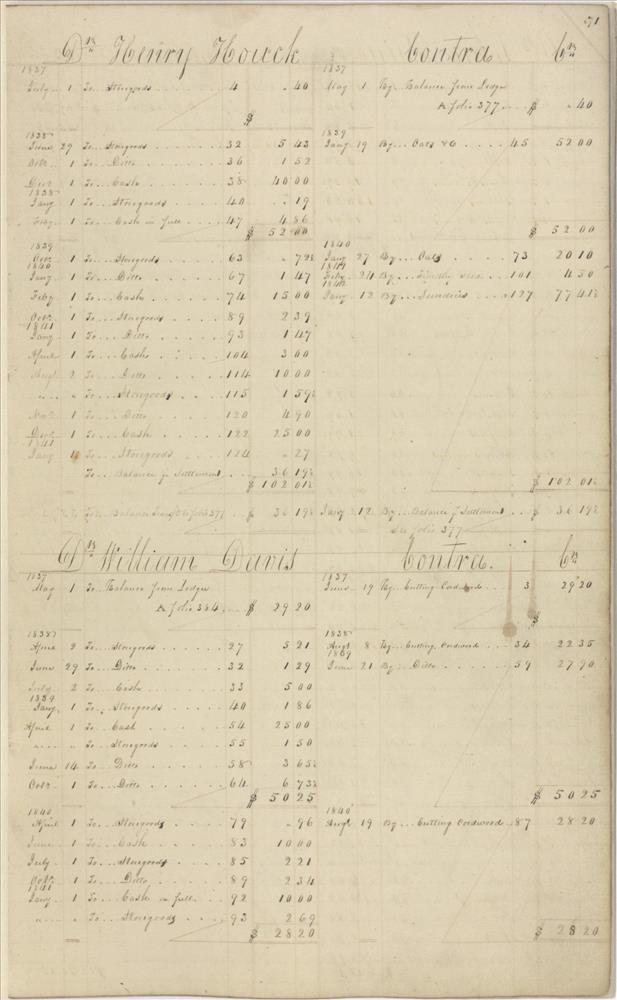 71
Dr Henry Houck Contra Cr
1837 1837
July 1 To Storegoods 4 " 40 May 1 By Balance from Ledger
A folio 377 $ " 40
$
1838 1839
June 29 To Storegoods 32 5 43 Jany 19 By Oats &c 45 52 00
Octr 1 To Ditto 36 1 52
Decr 1 To Cash 38 40 00
1838
Jany 1 To Storegoods 40 " 19
Feby 1 To Cash in full 47 4 86
$ 52 00 $ 52 00
1839 1840
Octr 1 To Storegoods 63 " 79½ Jany 27 By Oats 73 20 10
1840 1841
Jany 1 To Ditto 67 1 47 Feby 24 By Timothy seed 101 4 50
1842
Feby 1 To Cash 74 15 00 Jany 12 By Sundries 127 77 41½
Octr 1 To Storegoods 89 2 39
1841
Jany 1 To Ditto 93 1 47
April 1 To Cash 104 3 00
Augt 2 To Ditto 114 10 00
" " To Storegoods 115 1 59½
Novr 1 To Ditto 120 4 90
Decr 1 To Cash 122 25 00
1841
Jany 1 To Storegoods 124 " 27
To Balance p Settlement 36 19½
$ 102 01½ $ 102 01½
To Balance folio 377 $ 36 19½ Jany 12 By Balance p Settlement $ 36 19½
See folio 377
Dr William Davis Contra. Cr
1837 1837
May 1 To Balance from Ledger June 19 By Cutting Cordwood 3 29 20
A folio 384 $ 29 20
$
1838 1838
April 2 To Storegoods 27 5 21 Augt 8 By Cutting Cordwood 34 22 35
1839
June 29 To Ditto 32 1 29 June 21 By Ditto 59 27 90
July 2 To Cash 33 5 00
1839
Jany 1 To Storegoods 40 1 86
April 1 To Cash 54 25 00
" " To Storegoods 55 1 50
June 14 To Ditto 58 3 65½
Octr 1 To Ditto 64 6 73½
$ 50 25 $ 50 25
1840 1840
April 1 To Storegoods 79 " 96 Augt 19 By Cutting Cordwood 87 28 20
June 1 To Cash 83 10 00
July 1 To Storegoods 85 2 21
Octr 1 To Ditto 89 2 34
1841
Jany 1 To Cash in full 92 10 00
" " To Storegoods 93 2 69
$ 28 20 $ 28 20